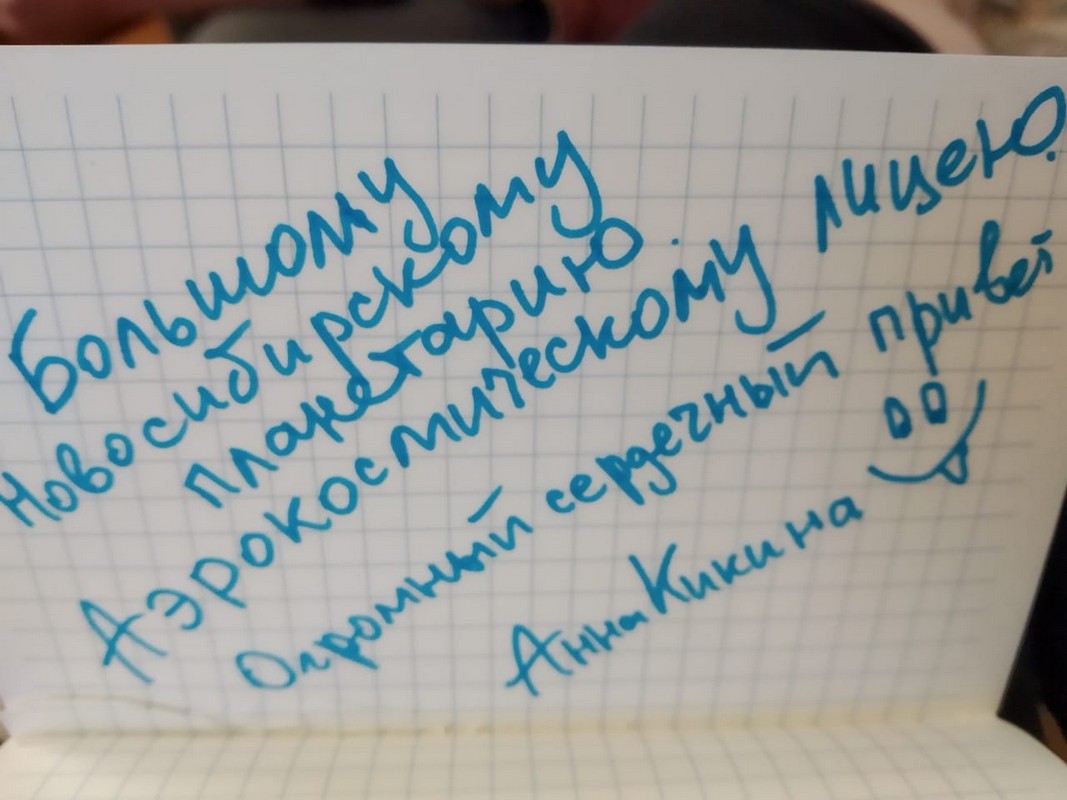 Большому
Новосибирскому
планетарию
Аэрокосмическому лицею.
Огромный сердечный привет
Анна Кикина